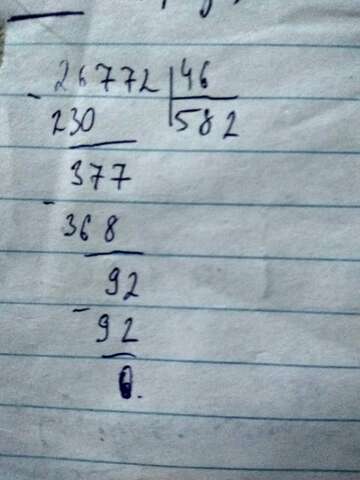 - 26772 | 46
230 582
377
- 368
92
- 92
0.